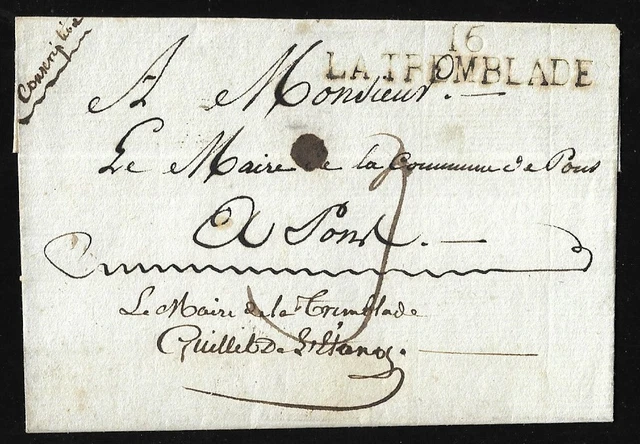 Conscription
16
LA TREMBLADE
A Monsieur.
Le Maire de la Commune de Pons
A Pons.
Le Maire de la Trimblade
Guillet De